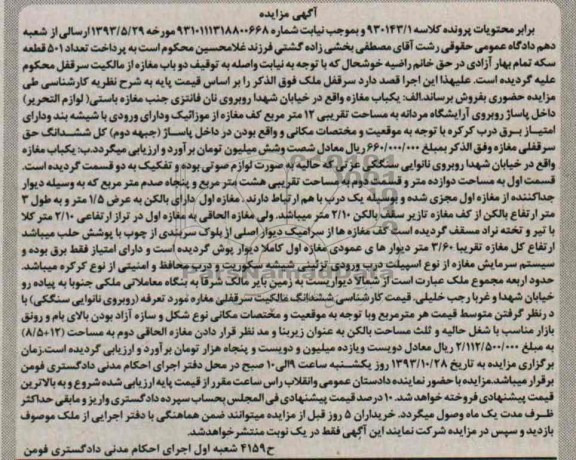 آگهی مزایده
برابر محتویات پرونده کلاسه ۹۳۰۱۴۳/۱ و بموجب نیابت شماره ۹۳۱۰۱۱۱۳۱۸۸۰۰۶۶۸ مورخه ۱۳۹۳/۵/۲۹ ارسالی از شعبه
دهم دادگاه عمومی حقوقی رشت آقای مصطفی بخشی زاده گشتی فرزند غلامحسین محکوم است به پرداخت تعداد ۵۰۱ قطعه
سکه تمام بهار آزادی در حق خانم راضیه خوشحال که با توجه به نیابت واصله به توقیف دو باب مغازه از مالکیت سرقفل محکوم
علیه گردیده است. علیهذا این اجرا قصد دارد سرقفل ملک فوق الذکر را بر اساس قیمت پایه به شرح نظریه کارشناسی طی
مزایده حضوری بفروش برساند.الف: یکباب مغازه واقع در خیابان شهدا روبروی نان فانتزی جنب مغازه باستی( لوازم التحریر)
داخل پاساژ روبروی آرایشگاه مردانه به مساحت تقریبی ۱۲ متر مربع کف مغازه از موزائیک ودارای ورودی با شیشه بند ودارای
امتیاز برق درب کرکره با توجه به موقعیت و مختصات مکانی و واقع بودن در داخل پاساژ (جبهه دوم) کل ششدانگ حق
سرقفلی مغازه وفق الذکر بمبلغ ۶۶۰/۰۰۰/۰۰۰ ریال معادل شصت وشش میلیون تومان برآورد و ارزیابی میگردد.ب: یکباب مغازه
واقع در خیابان شهدا روبروی نانوایی سنگکی عزتی که حالیه به صورت لوازم صوتی بوده و تفکیک به دو قسمت گردیده است.
قسمت اول به مساحت دوازده متر و قسمت دوم به مساحت تقریبی هشت متر مربع و پنجاه صدم متر مربع که به وسیله دیوار
جداکننده از مغازه اول مجزی شده و بوسیله یک درب با هم ارتباط دارند. مغازه اول دارای بالکن به عرض ۱/۵ متر و به طول ۳
متر ارتفاع بالکن از کف مغازه تازیر سقف بالکن ۲/۱۰ متر میباشد. ولی مغازه الحاقی به مغازه اول در تراز ارتفاعی ۲/۱۰ متر کلا
با تیر و تخته نراد مسقف گردیده است کف مغازه ها از سرامیک دیوار اصلی از بلوک سربندی از چوب با پوشش حلب میباشد
ارتفاع کل مغازه تقریبا ۳/۶۰ متر دیوار ها ی عمودی مغازه اول کاملا دیوار پوش گردیده است و دارای امتیاز فقط برق بوده و
سیستم سرمایش مغازه از نوع اسپیلت درب ورودی تزئینی شیشه سکوریت و درب محافظ و امنیتی از نوع کرکره میباشد.
حدود اربعه مجموع ملک عبارت است از شمالا دیواریست به زمین بایر مالک شرقا به بنگاه معاملاتی ملکی جنوبا به پیاده رو
خیابان شهدا و غربا رجب خلیلی. قیمت کارشناسی ششدانگ مالکیت سرقفلی مغازه مورد تعرفه (روبروی نانوایی سنگکی) با
د رنظر گرفتن متوسط قیمت هر مترمربع وبا توجه به موقعیت و مختصات مکانی نوع شکل و سازه آزاد بودن بالای بام و رونق
بازار مناسب با شغل حالیه و ثلث مساحت بالکن به عنوان زیربنا و مد نظر قرار دادن مغازه الحاقی دوم به مساحت (۸/۵+۱۲)
به مبلغ ۲/۱۱۲/۵۰۰/۰۰۰ ریال معادل دویست ویازده میلیون و دویست و پنجاه هزار تومان برآورد و ارزیابی گردیده است.زمان
برگزاری مزایده به تاریخ ۱۳۹۳/۱۰/۲۸ روز یکشنبه ساعت ۹الی۱۰ صبح در محل دفتر اجرای احکام مدنی دادگستری فومن
برقرار میباشد.مزایده با حضور نماینده دادستان عمومی وانقلاب راس ساعت مقرر از قیمت پایه ارزیابی شده شروع و به بالاترین
قیمت پیشنهادی فروخته خواهد شد. ۱۰ درصد قیمت پیشنهادی فی المجلس بحساب سپرده دادگستری واریز و مابقی حداکثر
ظرف مدت یک ماه وصول میگردد. خریداران ۵ روز قبل از مزایده میتوانند ضمن هماهنگی با دفتر اجرایی از ملک موصوف
بازدید و سپس در مزایده شرکت نمایند این آگهی فقط در یک نوبت منتشرخواهدشد.
ح۴۱۵۹ شعبه اول اجرای احکام مدنی دادگستری فومن